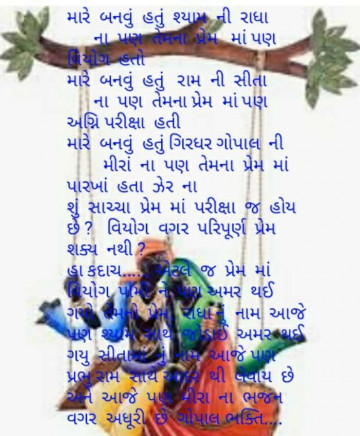 મારે બનવું હતું શ્યામ ની રાધા
ના પણ તેમના પ્રેમ માં પણ
વિયોગ હતો
મારે બનવું હતું રામ ની સીતા
ના પણ તેમના પ્રેમ માં પણ
અગ્નિ પરીક્ષા હતી
મારે બનવું હતું ગિરધર ગોપાલ ની
મીરાં ના પણ તેમના પ્રેમ માં
પારખાં હતા ઝેર ના
શું સાચ્ચા પ્રેમ માં પરીક્ષા જ હોય
છે ? વિયોગ વગર પરિપૂર્ણ પ્રેમ
શક્ય નથી ?
હા કદાચ...... એટલે જ પ્રેમ માં
વિયોગ પામી ને પણ અમર થઈ
ગયો તેમનો પ્રેમ રાધા નું નામ આજે
પણ શ્યામ સાથે જોડાઈ અમર થઈ
ગયુ સીતાજી નું નામ આજે પણ
પ્રભુ રામ સાથે થી લેવાય છે
અને આજે પણ મીરા ના ભજન
વગર અધૂરી છે ગોપાલ ભક્તિ....